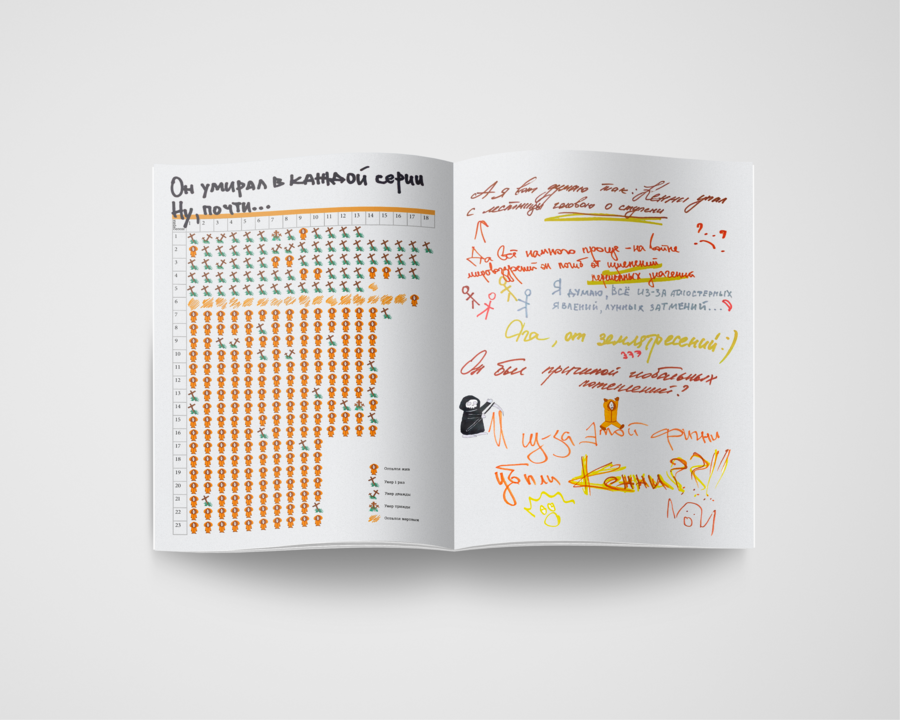 Он умирал в каждой серии
Ну, почти...
1 2 3 4 5 6 7 8 9 10 11 12 13 14 15 16 17 18
1
2
3
4
5
6
7
8
9
10
11
12
13
14
15
16
17
18
19
20
21
22
23
Остался жив
Умер 1 раз
Умер дважды
Умер трижды
Остался мертвым
А я вот думаю так: Кенни упал
с лестницы головою о ступени
Да вот намного проще - на войне
он погиб от
значения
Я думаю, всё из-за атмосферных
явлений, лунных затмений...
Ага, от землетрясений :)
???
Он был причиной глобальных
потеплений?
И из-за этой фигни
убили Кенни??!!